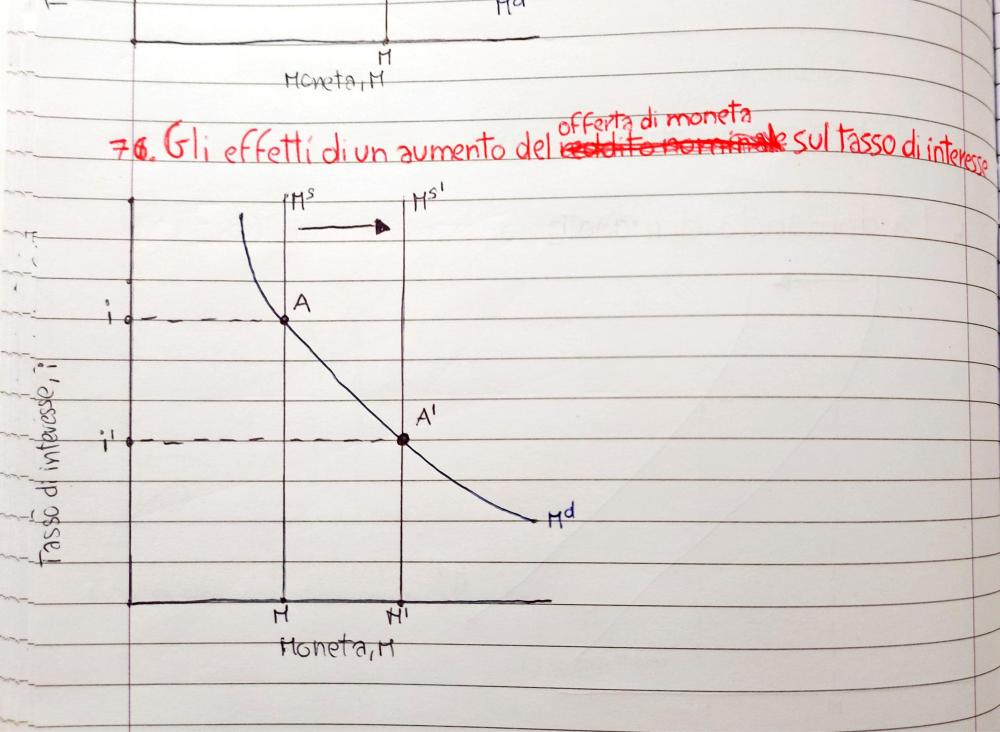 Md
M
Moneta, M
offerta di moneta
76. Gli effetti di un aumento del reddito nominale sul tasso di interesse
Ms Ms'
A
i
A'
i'
Tasso di interesse, i
Md
M M'
Moneta, M